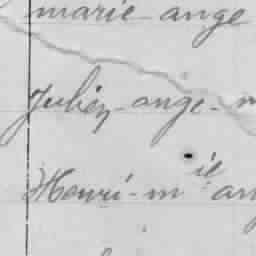 marie-ange
Julien-ange-m
Henri-m ie an